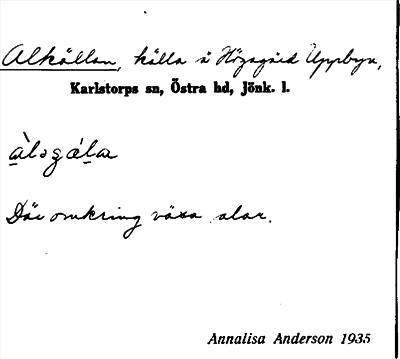 Alkällan, källa å Högagärd Uppbyn,
Karlstorps sn, Östra hd, Jönk. l.
Där omkring växa alar.
Annalisa Anderson 1935